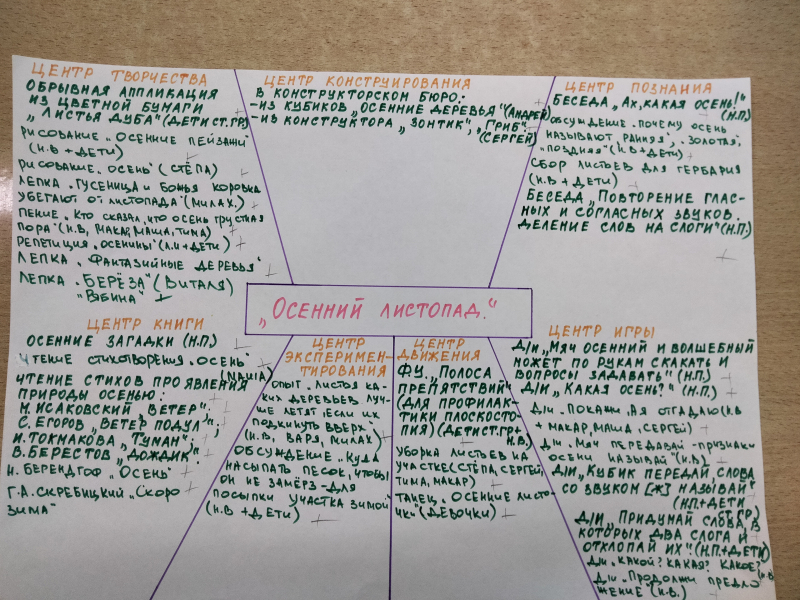 ЦЕНТР ТВОРЧЕСТВА
ОБРЫВНАЯ АППЛИКАЦИЯ
ИЗ ЦВЕТНОЙ БУМАГИ
„ЛИСТЬЯ ДУБА“ (ДЕТИ СТ. ГР)
РИСОВАНИЕ „ОСЕННИЕ ПЕЙЗАЖИ“
(Н.В + ДЕТИ)
РИСОВАНИЕ „ОСЕНЬ“ (СТЁПА)
ЛЕПКА „ГУСЕНИЦА И БОЖЬЯ КОРОВКА
УБЕГАЮТ ОТ ЛИСТОПАДА“ (МИЛАХ.)
ПЕНИЕ „КТО СКАЗАЛ, ЧТО ОСЕНЬ ГРУСТНАЯ
ПОРА“ (Н.В, МАКАР, МАША, ТИМА)
РЕПЕТИЦИЯ „ОСЕНИНЫ“ (Л.И + ДЕТИ)
ЛЕПКА „ФАНТАЗИЙНЫЕ ДЕРЕВЬЯ“
ЛЕПКА „БЕРЁЗА“ (ВИТАЛЯ)
„РЯБИНА“ +
ЦЕНТР КОНСТРУИРОВАНИЯ
В КОНСТРУКТОРСКОМ БЮРО:
-ИЗ КУБИКОВ „ОСЕННИЕ ДЕРЕВЬЯ“ (АНДРЕЙ)
-ИЗ КОНСТРУКТОРА „ЗОНТИК“, „ГРИБ“
(СЕРГЕЙ)
ЦЕНТР ПОЗНАНИЯ
БЕСЕДА „АХ, КАКАЯ ОСЕНЬ!“
(Н.П)
ОБСУЖДЕНИЕ „ПОЧЕМУ ОСЕНЬ
НАЗЫВАЮТ „РАННЯЯ“, „ЗОЛОТАЯ“,
„ПОЗДНЯЯ“ (Н.В + ДЕТИ)
СБОР ЛИСТЬЕВ ДЛЯ ГЕРБАРИЯ
(Н.В + ДЕТИ)
БЕСЕДА „ПОВТОРЕНИЕ ГЛАС-
НЫХ И СОГЛАСНЫХ ЗВУКОВ.
ДЕЛЕНИЕ СЛОВ НА СЛОГИ“ (Н.П.)
„ОСЕННИЙ ЛИСТОПАД.“
ЦЕНТР КНИГИ
ОСЕННИЕ ЗАГАДКИ (Н.П.)
ЧТЕНИЕ СТИХОТВОРЕНИЯ „ОСЕНЬ“
(МАША)
ЧТЕНИЕ СТИХОВ ПРО ЯВЛЕНИЯ
ПРИРОДЫ ОСЕНЬЮ:
М. ИСАКОВСКИЙ „ВЕТЕР“
С. ЕГОРОВ „ВЕТЕР ПОДУЛ“;
И. ТОКМАКОВА „ТУМАН“;
В. БЕРЕСТОВ „ДОЖДИК“
И. БЕРЕНДГОФ „ОСЕНЬ“
Г.А. СКРЕБИЦКИЙ „СКОРО
ЗИМА“
ЦЕНТР
ЭКСПЕРИМЕН-
ТИРОВАНИЯ
ОПЫТ „ЛИСТЬЯ КА-
КИХ ДЕРЕВЬЕВ ЛУЧ-
ШЕ ЛЕТЯТ, ЕСЛИ ИХ
ПОДКИНУТЬ ВВЕРХ“
(Н.В, ВАРЯ, МИЛАХ)
ОБСУЖДЕНИЕ „КУДА
НАСЫПАТЬ ПЕСОК, ЧТОБЫ
ОН НЕ ЗАМЁРЗ - ДЛЯ
ПОСЫПКИ УЧАСТКА ЗИМОЙ“
(Н.В + ДЕТИ)
ЦЕНТР
ДВИЖЕНИЯ
ФУ „ПОЛОСА
ПРЕПЯТСТВИЙ“
(ДЛЯ ПРОФИЛАК-
ТИКИ ПЛОСКОСТО-
ПИЯ) (ДЕТИ СТ. ГР +
Н.В.)
УБОРКА ЛИСТЬЕВ НА
УЧАСТКЕ (СТЁПА, СЕРГЕЙ,
ТИМА, МАКАР)
ТАНЕЦ „ОСЕННИЕ ЛИСТО-
ЧКИ“ (ДЕВОЧКИ)
ЦЕНТР ИГРЫ
Д/И „МЯЧ ОСЕННИЙ И ВОЛШЕБНЫЙ
МОЖЕТ ПО РУКАМ СКАКАТЬ И
ВОПРОСЫ ЗАДАВАТЬ“ (Н.П.)
Д/И „КАКАЯ ОСЕНЬ?“ (Н.П.)
Д/И „ПОКАЖИ, А Я ОТГАДАЮ (Н.В
+ МАКАР, МАША, СЕРГЕЙ)
Д/И „МЯЧ ПЕРЕДАВАЙ - ПРИЗНАКИ
ОСЕНИ НАЗЫВАЙ“ (Н.В)
Д/И „КУБИК ПЕРЕДАЙ СЛОВА
СО ЗВУКОМ [Ж] НАЗЫВАЙ“
(Н.П + ДЕТИ
СТ. ГР)
Д/И „ПРИДУМАЙ СЛОВА, В
КОТОРЫХ ДВА СЛОГА И
ОТХЛОПАЙ ИХ“ (Н.П. + ДЕТИ)
Д/И „КАКОЙ? КАКАЯ? КАКОЕ?“ (Н.В)
Д/И „ПРОДОЛЖИ ПРЕДЛО-
ЖЕНИЕ“ (Н.В.)